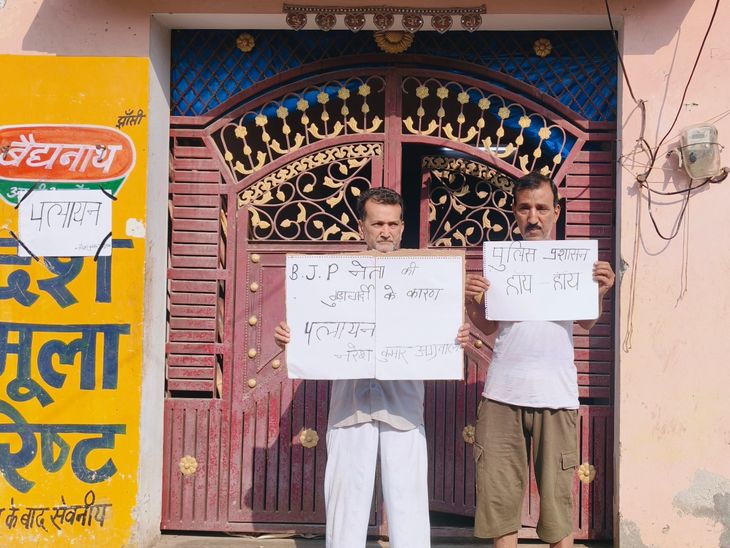 झाँसी
बैद्यनाथ
पलायन
देश
मूला
रिष्ट
के बाद सेवनीय
B.J.P नेता की
के कारण
पलायन
कुमार अग्रवाल
पुलिस प्रशासन
हाय - हाय